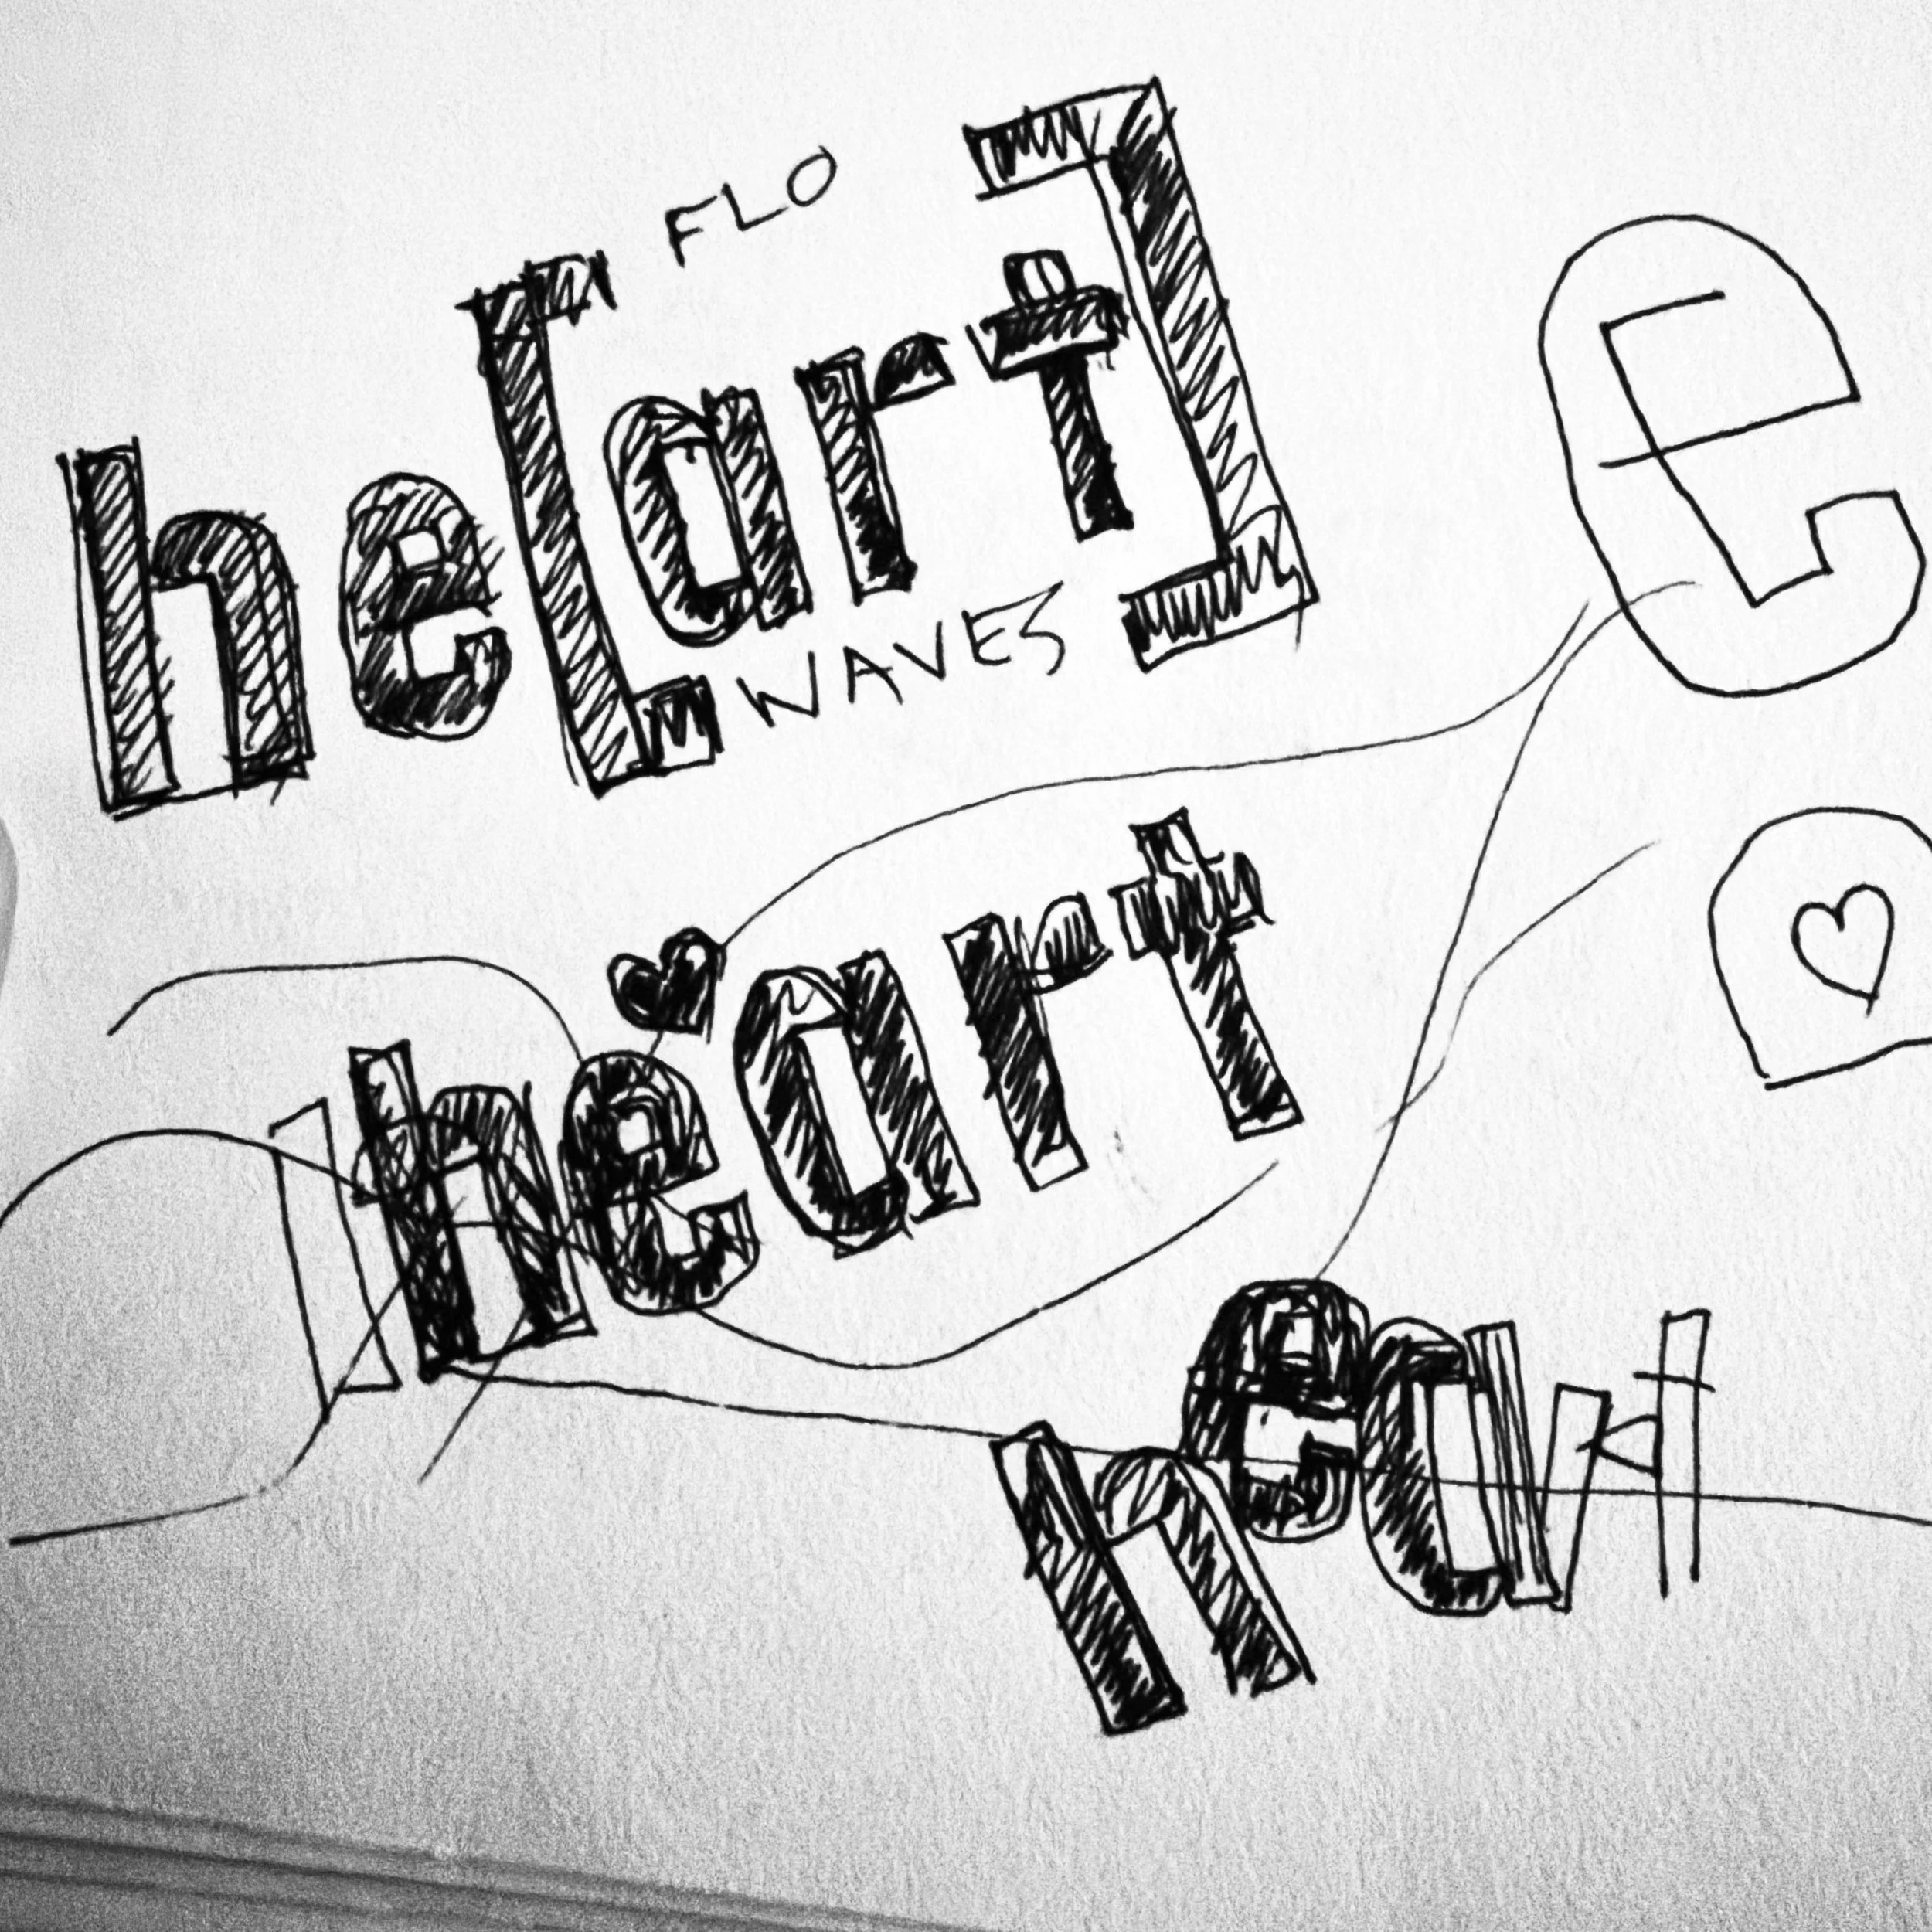 FLO
he[art]
WAVES
e
heart
heart